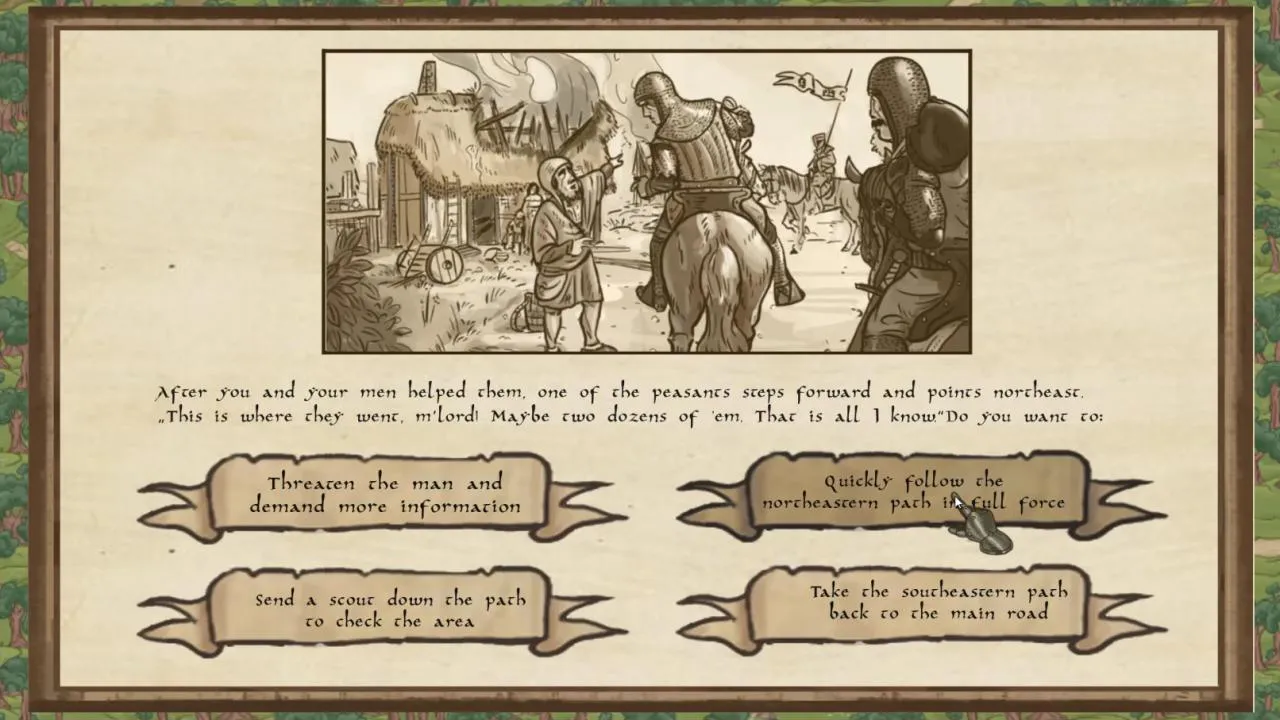 After you and your men helped them, one of the peasants steps forward and points northeast.
„This is where they went, m'lord! Maybe two dozens of 'em. That is all I know."Do you want to:
Threaten the man and
demand more information
Quickly follow the
northeastern path in full force
Send a scout down the path
to check the area
Take the southeastern path
back to the main road